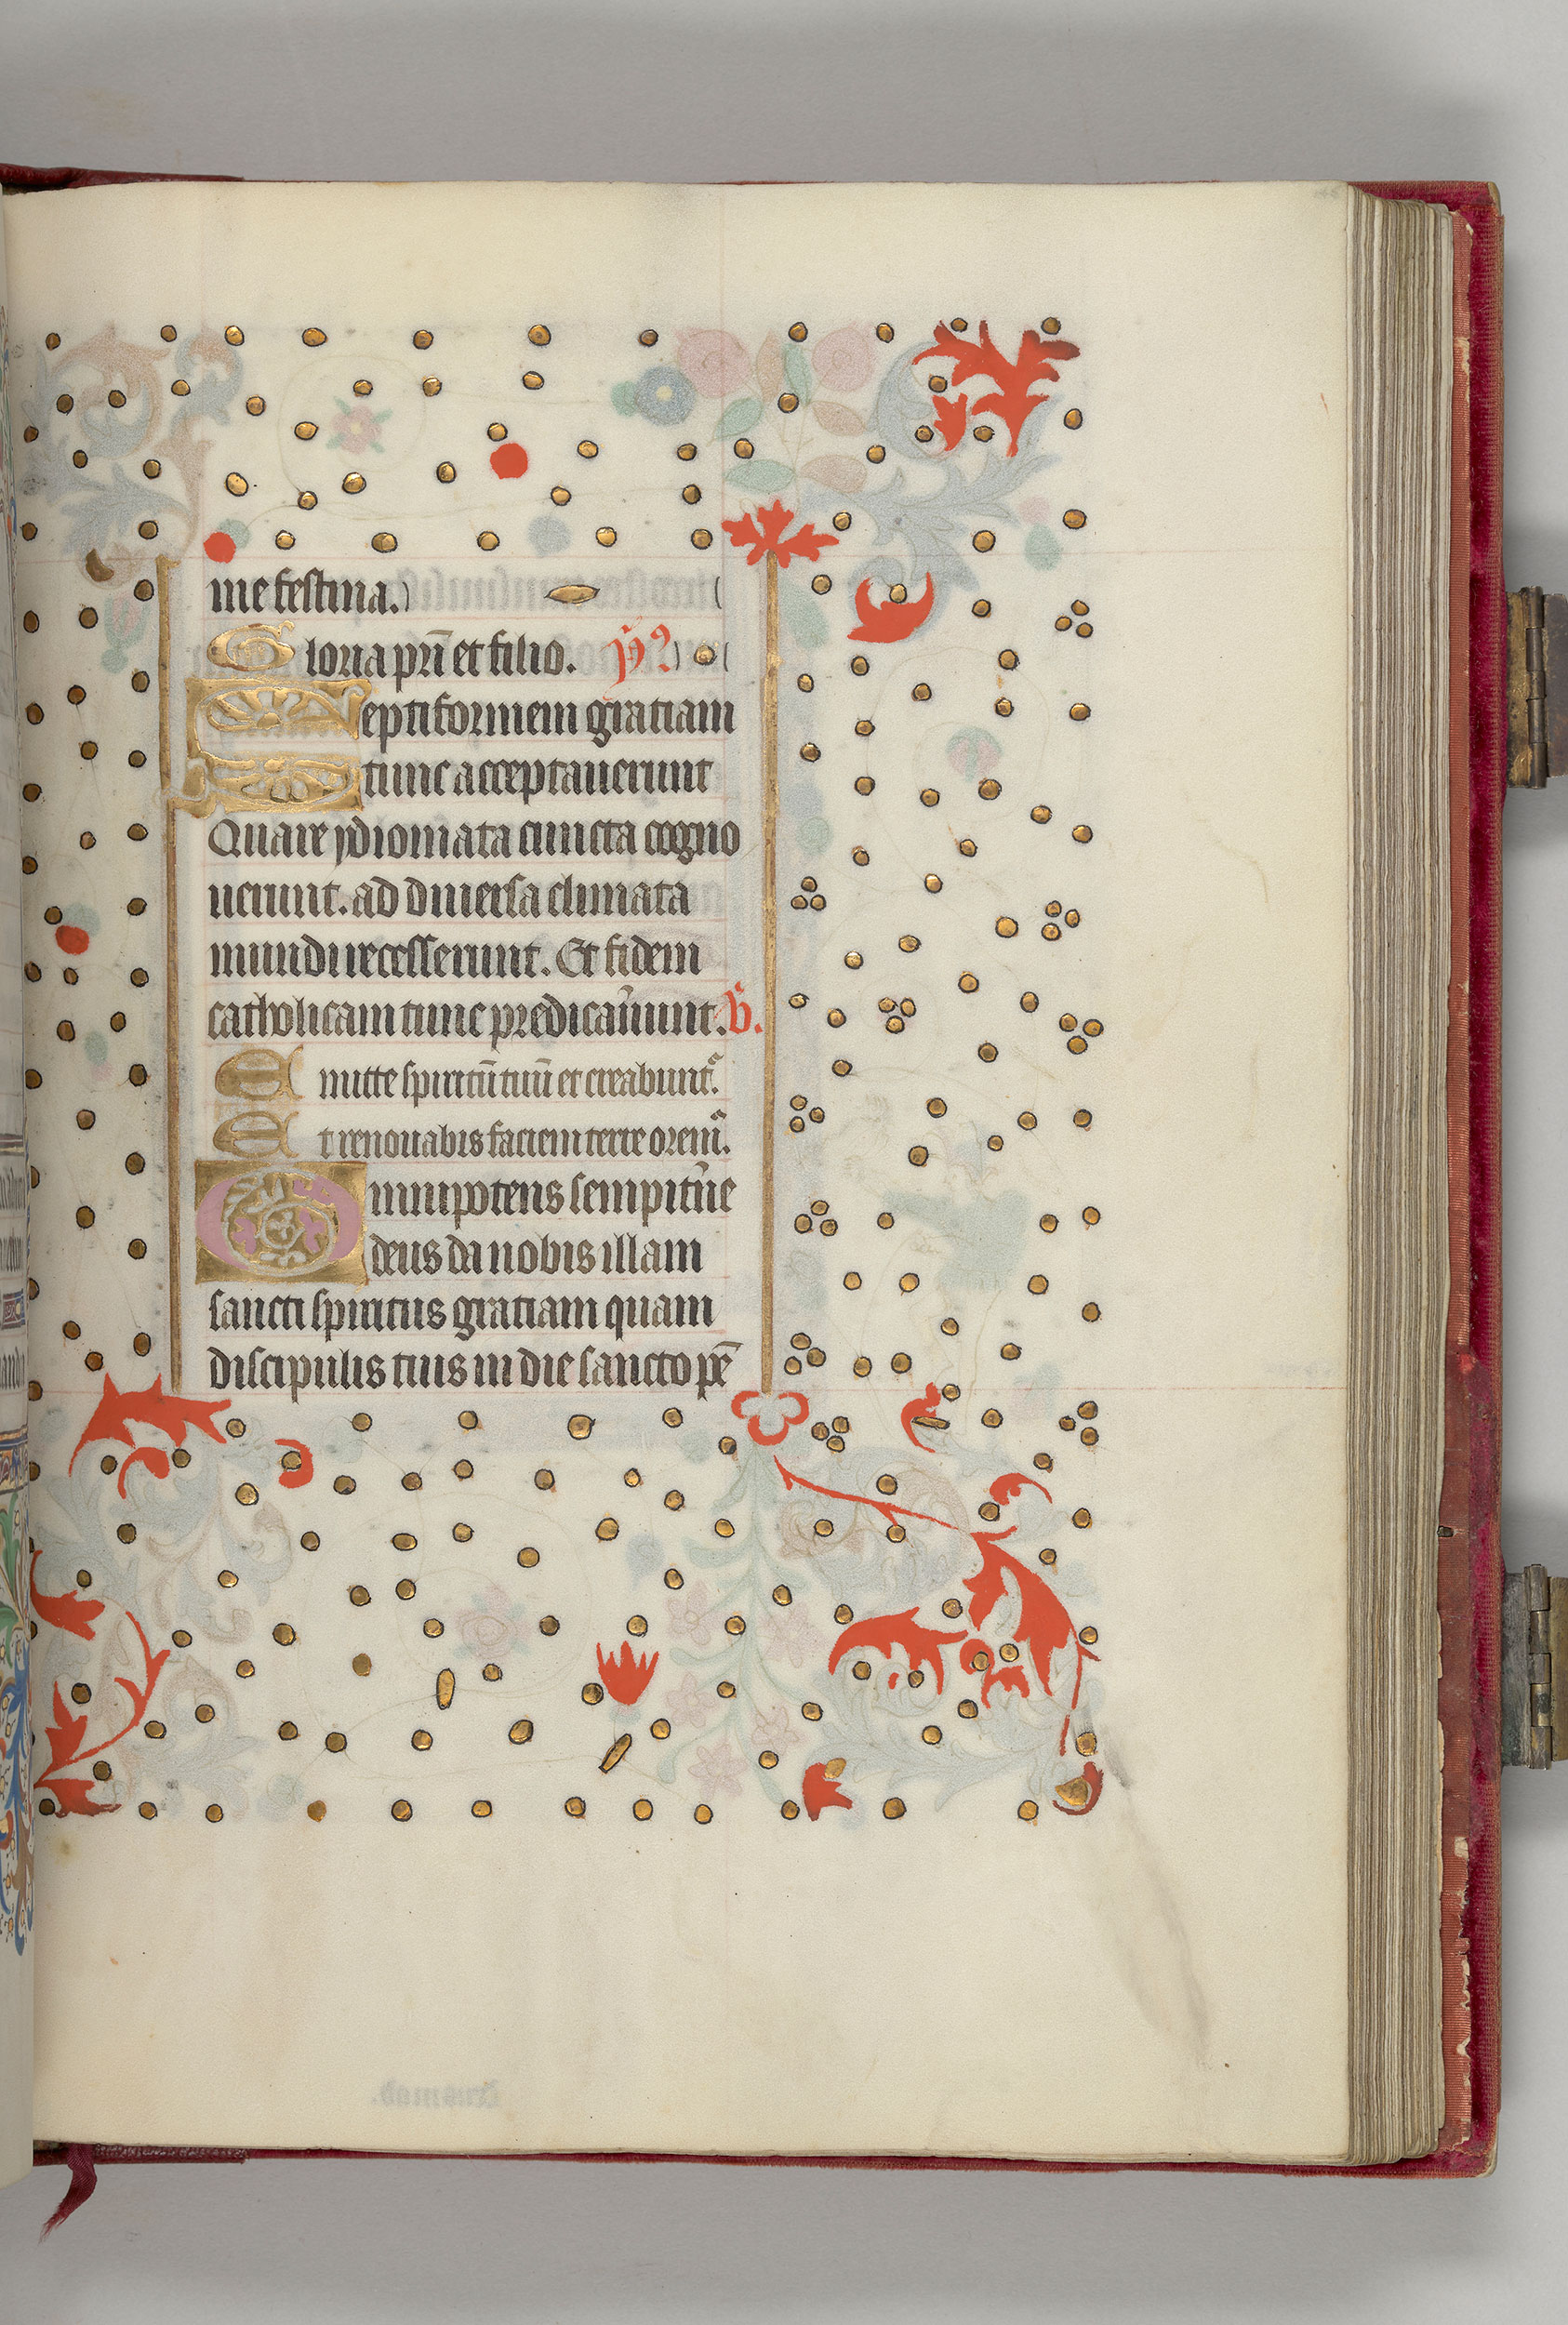 me festina.
Gloria pr̄i et filio. ȳ9
Septiformem gratiam
tunc acceptauerunt
Quare ydiomata cuncta cogno
uerunt. ad diuersa climata
mundi recesserunt. Et fidem
catholicam tunc predicau̅unt. v̄.
Emitte spiritū tuū et creabunt᷑.
Et renouabis faciem terre orem᷑.
Omnipotens sempit̅ne
deus da nobis illam
sancti spiritus gratiam quam
discipulis tuis in die sancto pē